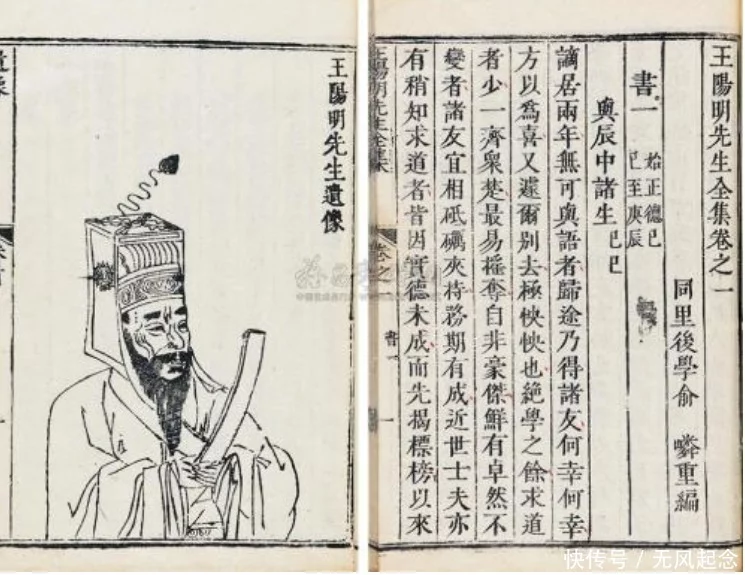 王陽明先生全集卷之一
同里後學俞 嶙重編
書一
始正德己
巳至庚辰
與辰中諸生己巳
謫居兩年無可與語者歸途乃得諸友何幸何幸
方以爲喜又遽爾別去極怏怏也絕學之餘求道
者少一齊衆楚最易搖奪自非豪傑鮮有卓然不
變者諸友宜相砥礪夾持務期有成近世士夫亦
有稍知求道者皆因實德未成而先揭標榜以來
王陽明先生全集
卷之一
書一
王陽明先生遺像
快传号 / 无风起念